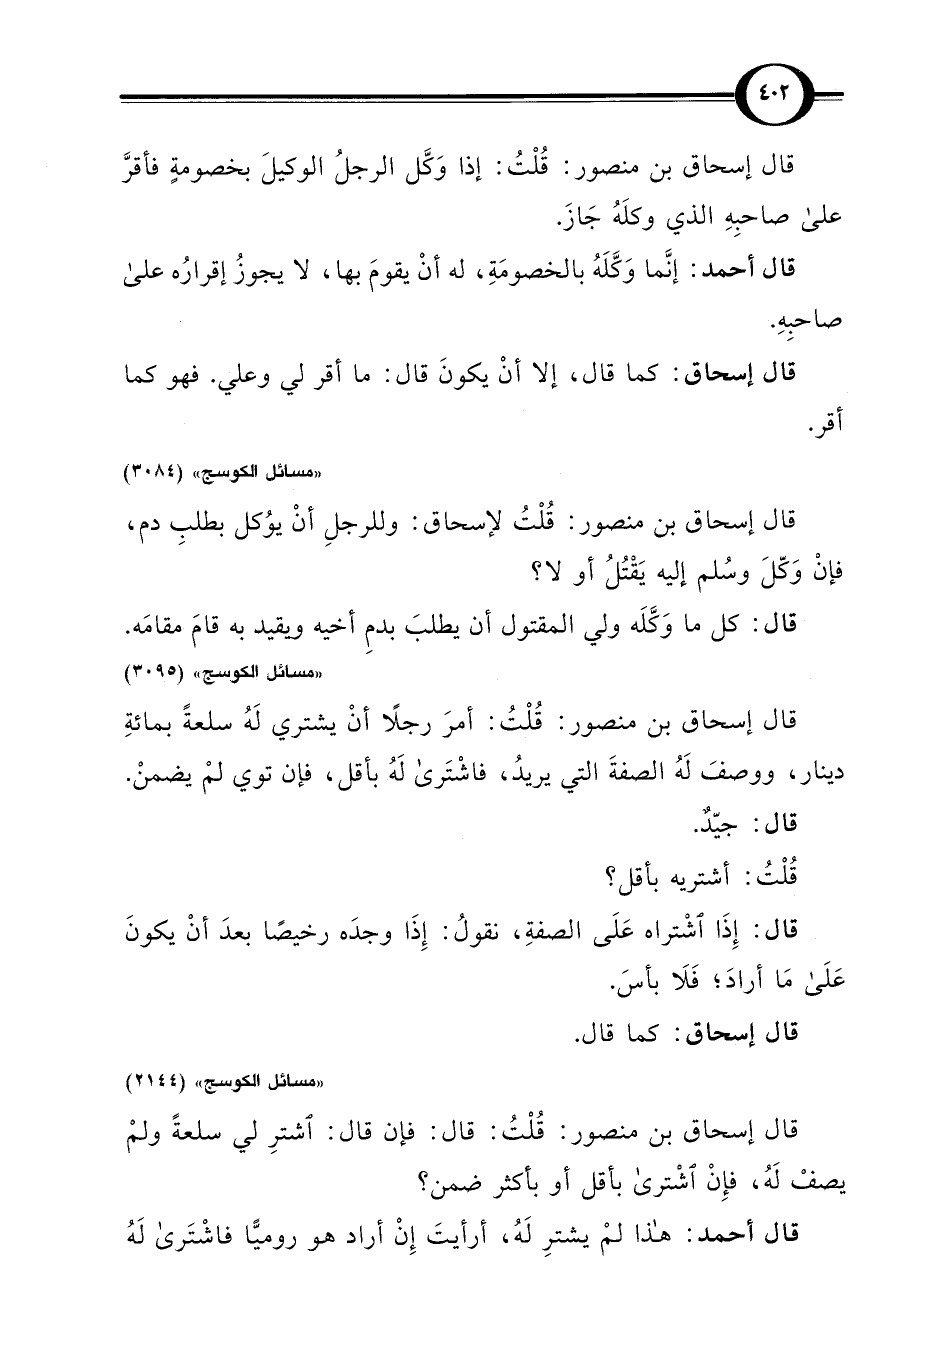 ٤٠٢
قال إسحاق بن منصور: قُلْتُ: إذا وَكَّل الرجلُ الوكيلَ بخصومةٍ فأقرَّ
علىٰ صاحبِهِ الذي وكلَهُ جَازَ.
قال أحمد: إنَّما وَكَّلَهُ بالخصومَةِ، له أنْ يقومَ بها، لا يجوزُ إقرارُه علىٰ
صاحبِهِ.
قال إسحاق: كما قال، إلا أنْ يكونَ قال: ما أقر لي وعلي. فهو كما
أقر.
«مسائل الكوسج» (٣٠٨٤)
قال إسحاق بن منصور: قُلْتُ لإسحاق: وللرجلِ أنْ يوُكل بطلبِ دم،
فإنْ وَكّلَ وسُلم إليه يَقْتُلُ أو لا؟
قال: كل ما وَكَّلَه ولي المقتول أن يطلبَ بدمِ أخيه ويقيد به قامَ مقامَه.
«مسائل الكوسج» (٣٠٩٥)
قال إسحاق بن منصور: قُلْتُ: أمرَ رجلًا أنْ يشتري لَهُ سلعةً بمائةِ
دينار، ووصفَ لَهُ الصفةَ التي يريدُ، فاشْتَرىٰ لَهُ بأقل، فإن توي لمْ يضمنْ.
قال: جيّدٌ.
قُلْتُ: أشتريه بأقل؟
قال: إذَا ٱشْتراه عَلَى الصفةِ، نقولُ: إذَا وجدَه رخيصًا بعدَ أنْ يكونَ
عَلَىٰ مَا أرادَ؛ فَلَا بأسَ.
قال إسحاق: كما قال.
«مسائل الكوسج» (٢١٤٤)
قال إسحاق بن منصور: قُلْتُ: قال: فإن قال: ٱشترِ لي سلعةً ولمْ
يصفْ لَهُ، فإنْ ٱشْترىٰ بأقل أو بأكثر ضمن؟
قال أحمد: هـٰذا لمْ يشترِ لَهُ، أرأيتَ إنْ أراد هو روميًّا فاشْتَرىٰ لَهُ